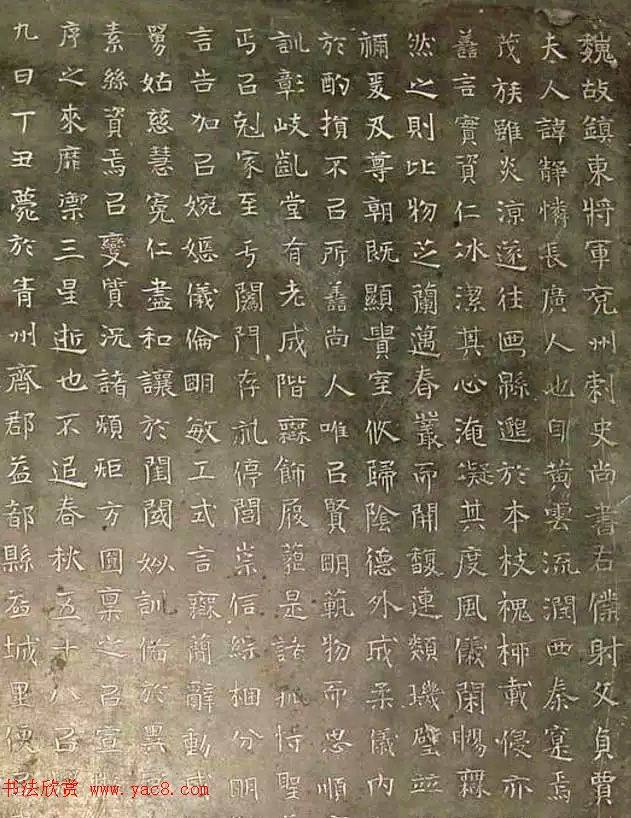 魏故鎮東將軍兖州刺史尚書右僕射文貞賈
夫人諱靜憐長廣人也自黃雲流潤西秦寔焉
茂族雖炎涼遂往縣邈於本枝槐柳載侵亦
譱言實資仁冰潔其心淹凝其度風儀閑暢
然之則比物芝蘭邁春叢而開馥連類璣璧並
禰爰及尊朝既顯貴室攸歸陰德外成柔儀內
於酌損不㠯所譱尚人唯㠯賢明範物而忠順
訓彰岐凱堂有老成階無飾履藐是諸孤恃聖
㠯剋家至於闔門存停閭崇信綜梱分明
言告加㠯婉嫕儀倫明敏工式言無簡辭動或
舅姑慈慧寬仁盡和讓於閨閫妙訓備於異
素絲資焉㠯變質況諸炬方圓稟之㠯宣
序之來靡稟三星逝也不追春秋五十八㠯
九日丁丑薨於青州齊郡益都縣益城里便
书法欣赏 www.yac8.com